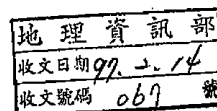 地理資訊部
收文日期 97. 2. 14
收文號碼 067 號